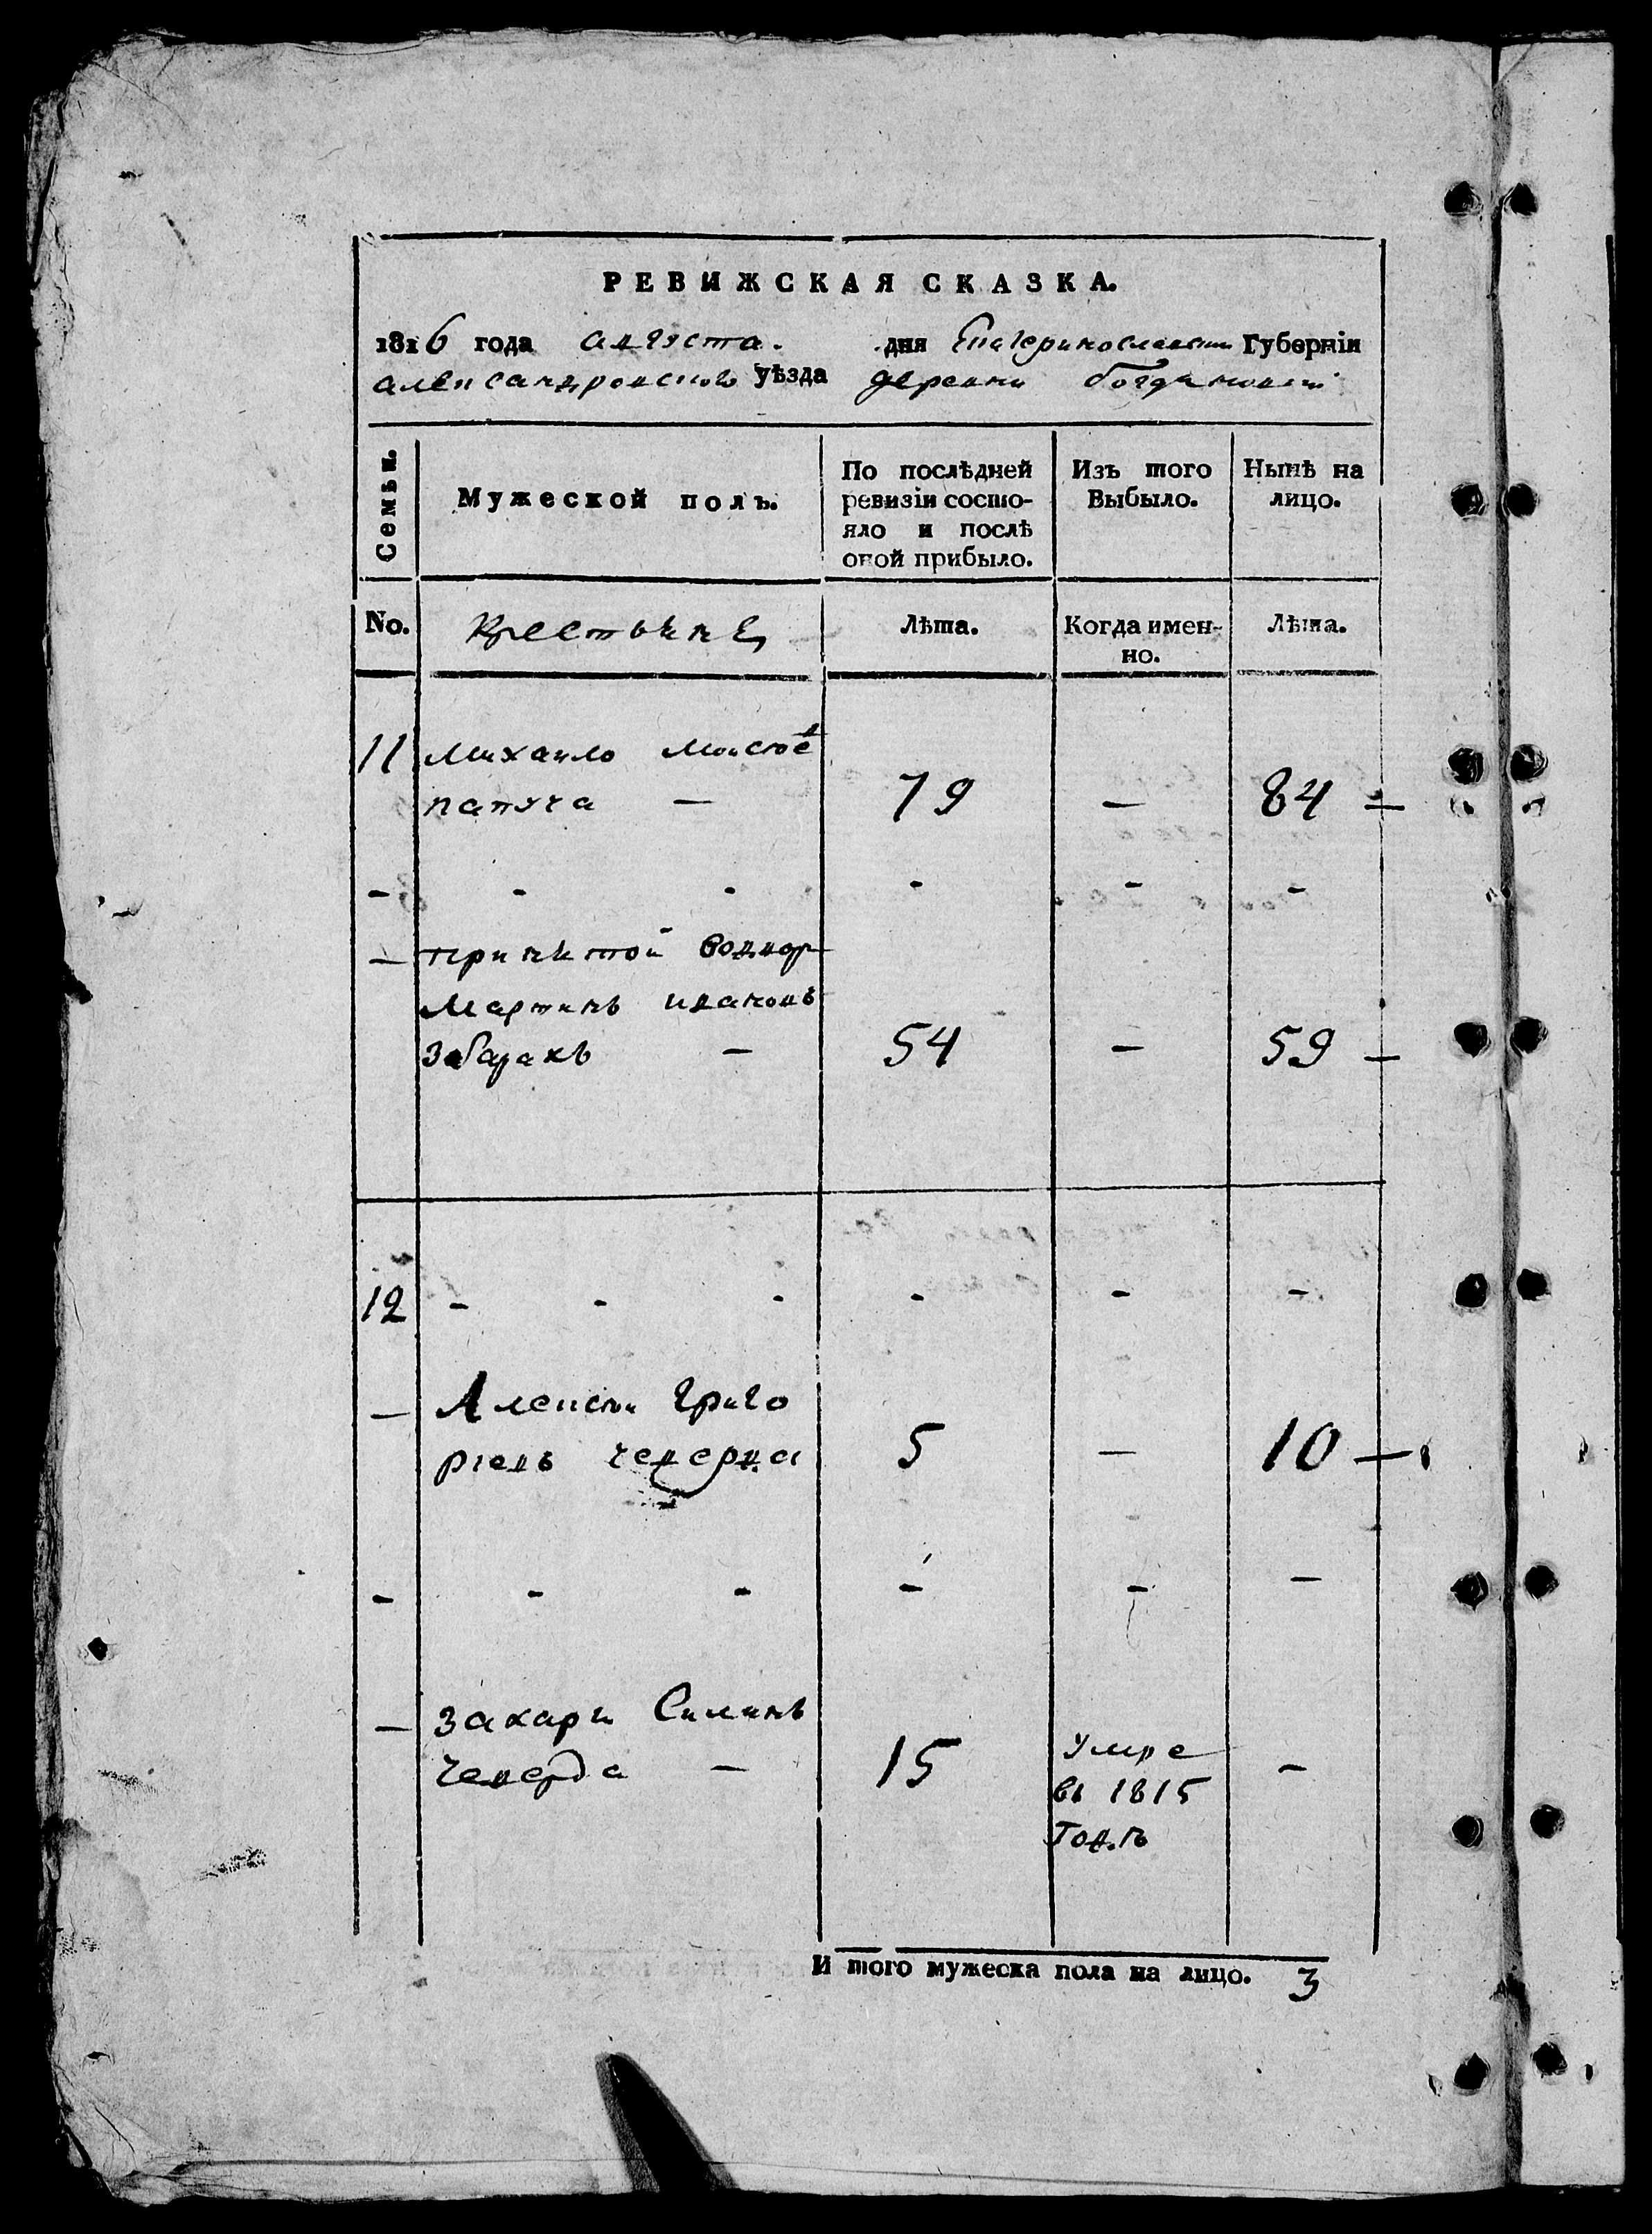 РЕВИЖСКАЯ СКАЗКА.
1816 года августа. дня Екатеринославской Губерніи
александровского уѣзда деревни богдановки
Семьи.
Мужеской полъ.
По послѣдней ревизіи состо-
яло и послѣ
оной прибыло.
Изъ того
Выбыло.
Нынѣ на
лицо.
No. крестьяне Лѣта. Когда имен-
но. Лѣта.
11 михаило
папуча — 79 — 84 —
- - - - - -
— принятой
мартинъ ивановъ
— 54 — 59 —
12 - - - - - -
— Алексей григо
риевъ чеверда 5 — 10 —
- - - - - -
— захари Силинъ
чеверда — 15 умре
въ 1815
годѣ -
И того мужеска пола на лицо. 3